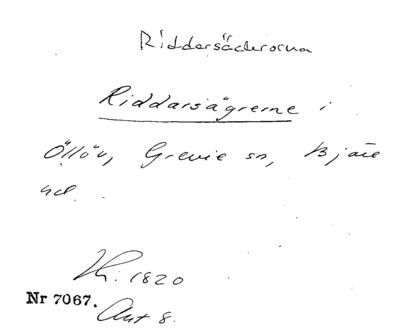 Riddarsäckrorna
Riddarsägrerne i
Öllöv, Grevie sn, Bjäre
hd.
1820
Nr 7067.
Akt 8.